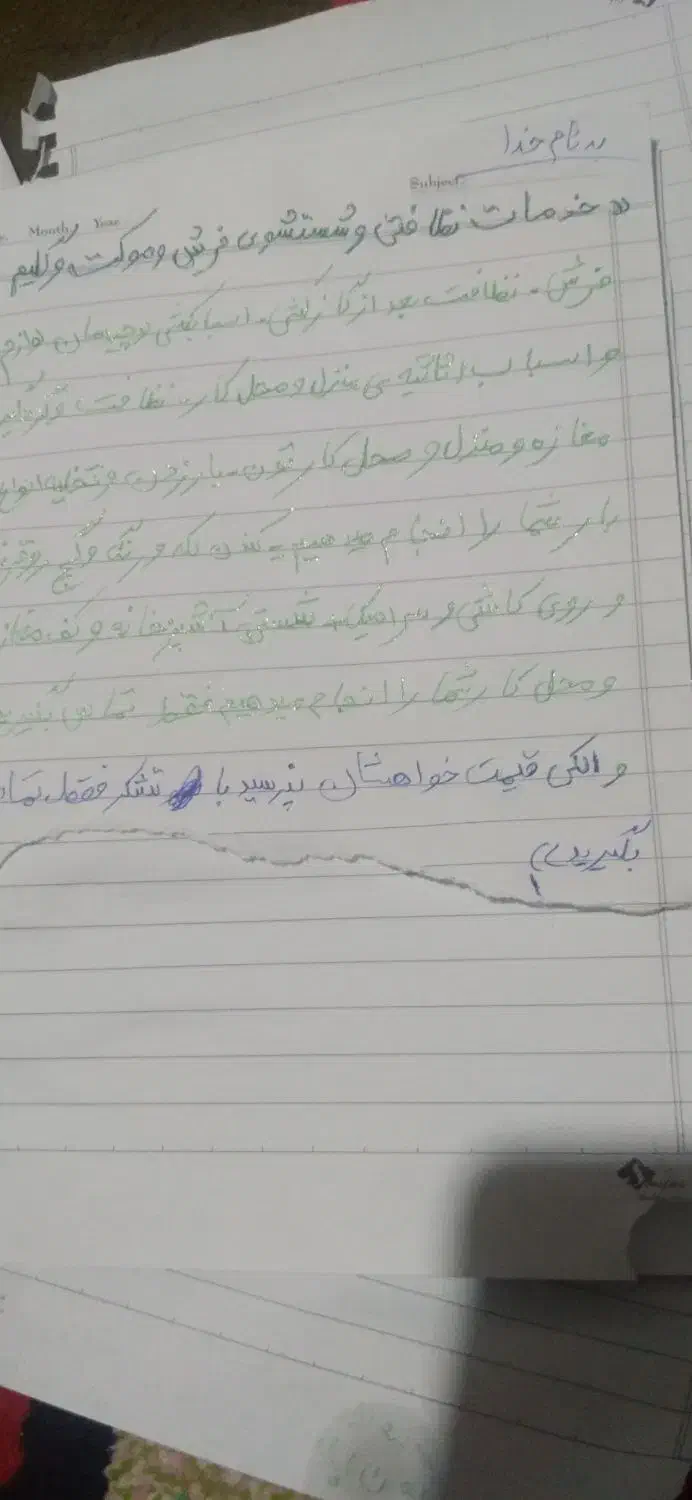 به نام خدا
Subject:
Month Year
« خدمات نظافتی و شستشوی فرش و موکت و گلیم
فرش. نظافت بعد از کاغذ کشی. اسباب کشی و چیدمان لوازم
و اسباب اثاثیه ی منزل و محل کار. نظافت
مغازه و منزل و محل کار تون. بار زدن و تخلیه انواع
بار شما را انجام میدهیم. کندن و رنگ و گچ روی
و روی کاشی و سرامیک شستن آشپزخانه و کف مغازه
و محل کار شما را انجام میدهیم فقط تماس بگیرید
و الکی قیمت خواهشاً نپرسید با تشکر فقط تماس
بگیرید)